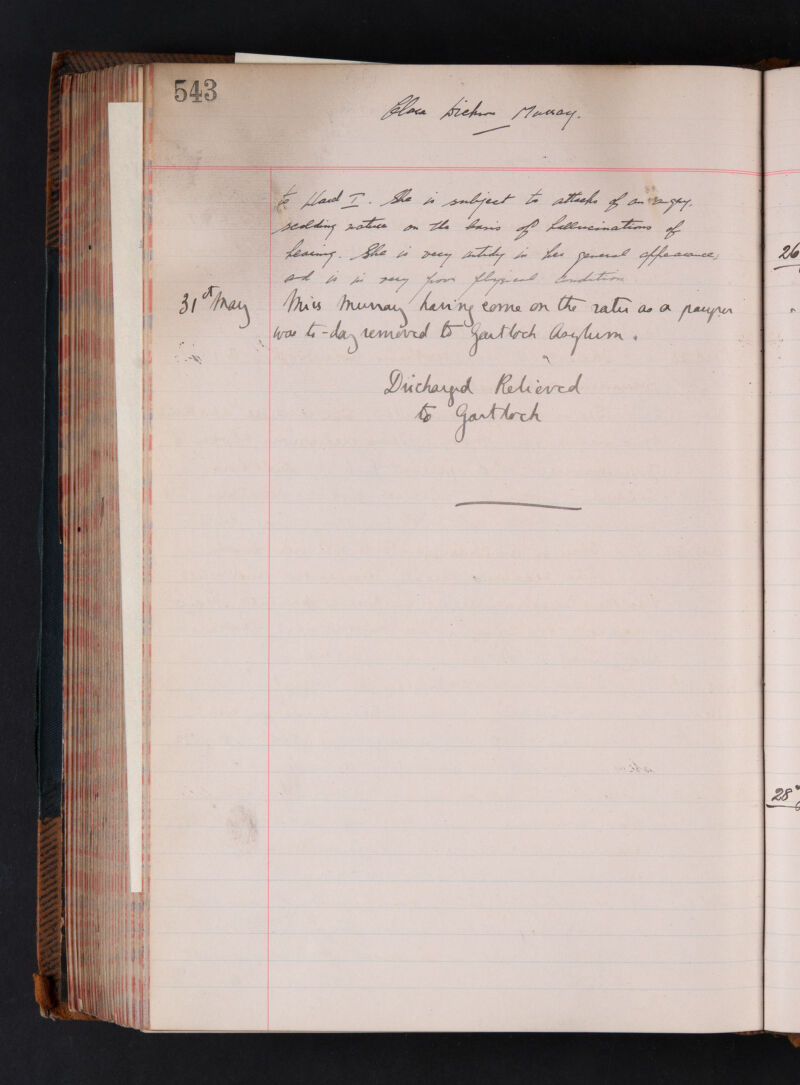 543
Clara Dickson Murray.
to Ward I. She is subject to attacks of an angry,
scolding nature on the basis of hallucinations of
hearing. She is very untidy in her general appearance,
and is in very poor physical condition
31st May Miss Murray having come on the rates as a pauper
was to-day removed to Gartloch Asylum.
Discharged Relieved
to Gartloch
26
28